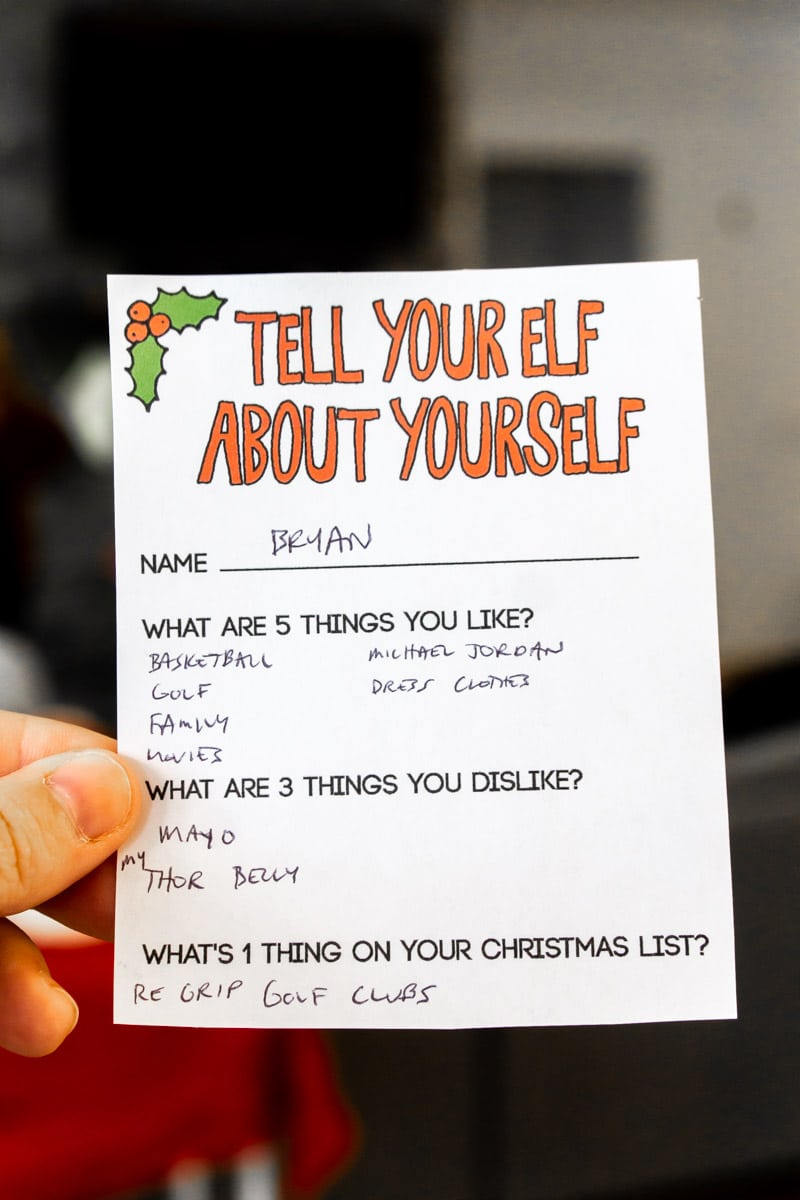 TELL YOUR ELF
ABOUT YOURSELF
NAME BRYAN
WHAT ARE 5 THINGS YOU LIKE?
BASKETBALL MICHAEL JORDAN
GOLF DRESS CLOTHES
FAMILY
MOVIES
WHAT ARE 3 THINGS YOU DISLIKE?
MAYO
MY THOR BELLY
WHAT'S 1 THING ON YOUR CHRISTMAS LIST?
RE GRIP GOLF CLUBS